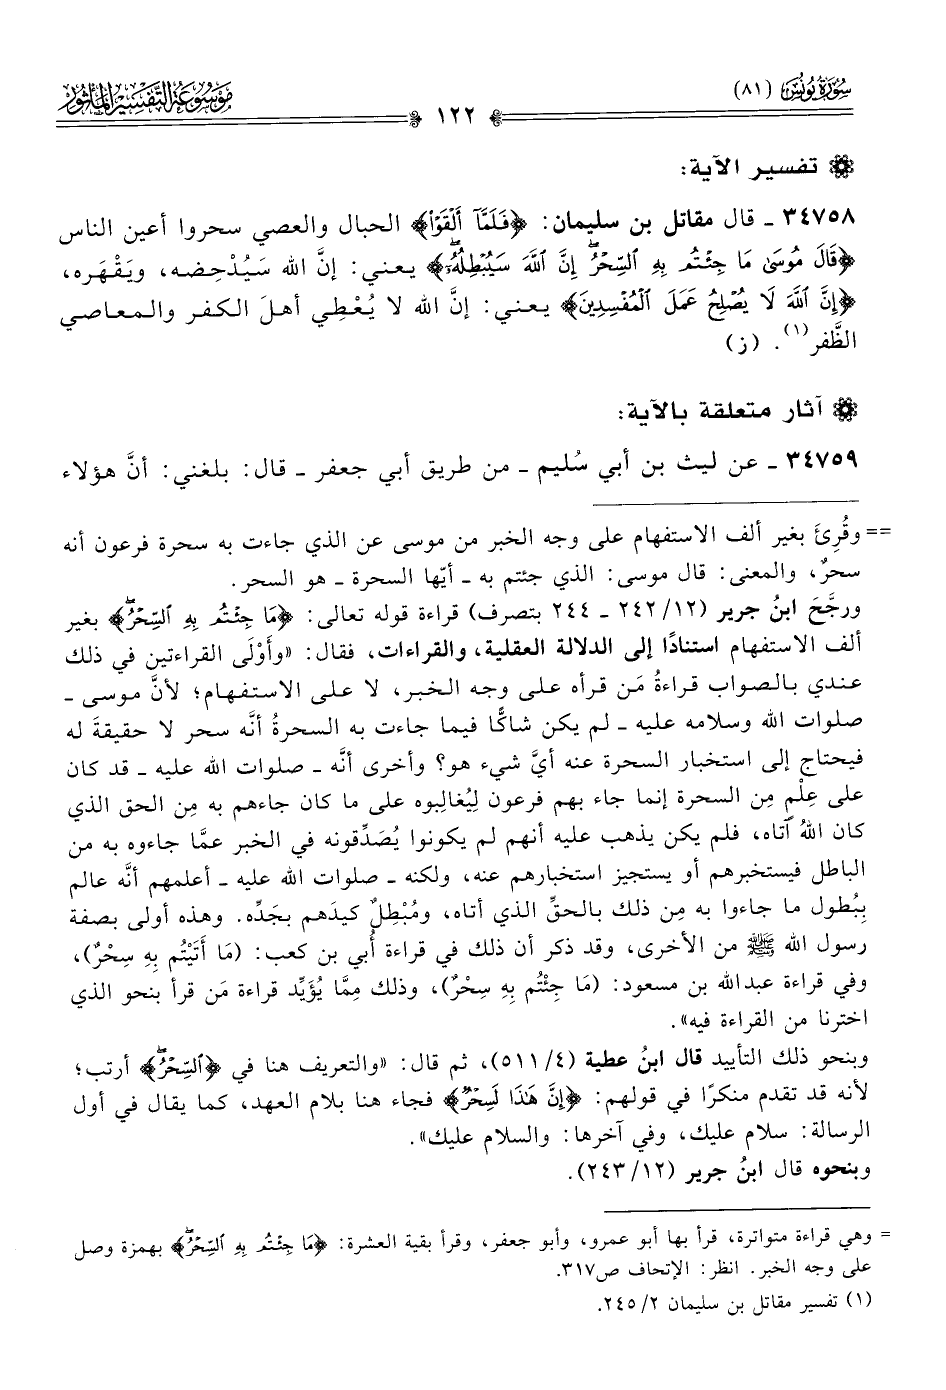 سُورَةُ يُونُسَ (٨١)
١٢٢
مَوْسُوعَةُ التَّفْسِيرِ المَأْثُورِ
تفسير الآية:
٣٤٧٥٨ ـ قال مقاتل بن سليمان: ﴿فَلَمَّآ أَلْقَوْا۟﴾ الحبال والعصي سحروا أعين الناس
﴿قَالَ مُوسَىٰ مَا جِئْتُم بِهِ ٱلسِّحْرُۖ إِنَّ ٱللَّهَ سَيُبْطِلُهُۥٓۖ﴾ يعني: إنَّ الله سَيُدْحِضه، ويَقْهَره،
﴿إِنَّ ٱللَّهَ لَا يُصْلِحُ عَمَلَ ٱلْمُفْسِدِينَ﴾ يعني: إنَّ الله لا يُعْطِي أهلَ الكفر والمعاصي
الظَّفر(١). (ز)
آثار متعلقة بالآية:
٣٤٧٥٩ ـ عن ليث بن أبي سُليم ـ من طريق أبي جعفر ـ قال: بلغني: أنَّ هؤلاء
== وقُرِئَ بغير ألف الاستفهام على وجه الخبر من موسى عن الذي جاءت به سحرة فرعون أنه
سحرٌ، والمعنى: قال موسى: الذي جئتم به ـ أيّها السحرة ـ هو السحر.
ورجَّحَ ابنُ جرير (١٢/ ٢٤٢ ـ ٢٤٤ بتصرف) قراءة قوله تعالى: ﴿مَا جِئْتُم بِهِ ٱلسِّحْرُۖ﴾ بغير
ألف الاستفهام استنادًا إلى الدلالة العقلية، والقراءات، فقال: «وأَوْلَى القراءتين في ذلك
عندي بالصواب قراءةُ مَن قرأه على وجه الخبر، لا على الاستفهام؛ لأنَّ موسى ـ
صلوات الله وسلامه عليه ـ لم يكن شاكًّا فيما جاءت به السحرةُ أنَّه سحر لا حقيقةَ له
فيحتاج إلى استخبار السحرة عنه أيَّ شيء هو؟ وأخرى أنَّه ـ صلوات الله عليه ـ قد كان
على عِلْمٍ مِن السحرة إنما جاء بهم فرعون لِيُغالِبوه على ما كان جاءهم به مِن الحق الذي
كان اللهُ آتاه، فلم يكن يذهب عليه أنهم لم يكونوا يُصَدِّقونه في الخبر عمَّا جاءوه به من
الباطل فيستخبرهم أو يستجيز استخبارهم عنه، ولكنه ـ صلوات الله عليه ـ أعلمهم أنَّه عالم
بِبُطول ما جاءوا به مِن ذلك بالحقِّ الذي أتاه، ومُبْطِلٌ كيدَهم بجَدِّه. وهذه أولى بصفة
رسول الله ﷺ من الأخرى، وقد ذكر أن ذلك في قراءة أُبي بن كعب: (مَا أَتَيْتُم بِهِ سِحْرٌ)،
وفي قراءة عبدالله بن مسعود: (مَا جِئْتُم بِهِ سِحْرٌ)، وذلك مِمَّا يُؤَيِّد قراءة مَن قرأ بنحو الذي
اخترنا من القراءة فيه».
وبنحو ذلك التأييد قال ابنُ عطية (٤/ ٥١١)، ثم قال: «والتعريف هنا في ﴿ٱلسِّحْرُۖ﴾ أرتب؛
لأنه قد تقدم منكرًا في قولهم: ﴿إِنَّ هَٰذَا لَسِحْرٌ﴾ فجاء هنا بلام العهد، كما يقال في أول
الرسالة: سلام عليك، وفي آخرها: والسلام عليك».
وبنحوه قال ابنُ جرير (١٢/ ٢٤٣).
= وهي قراءة متواترة، قرأ بها أبو عمرو، وأبو جعفر، وقرأ بقية العشرة: ﴿مَا جِئْتُم بِهِ ٱلسِّحْرُۖ﴾ بهمزة وصل
على وجه الخبر. انظر: الإتحاف ص٣١٧.
(١) تفسير مقاتل بن سليمان ٢/ ٢٤٥.